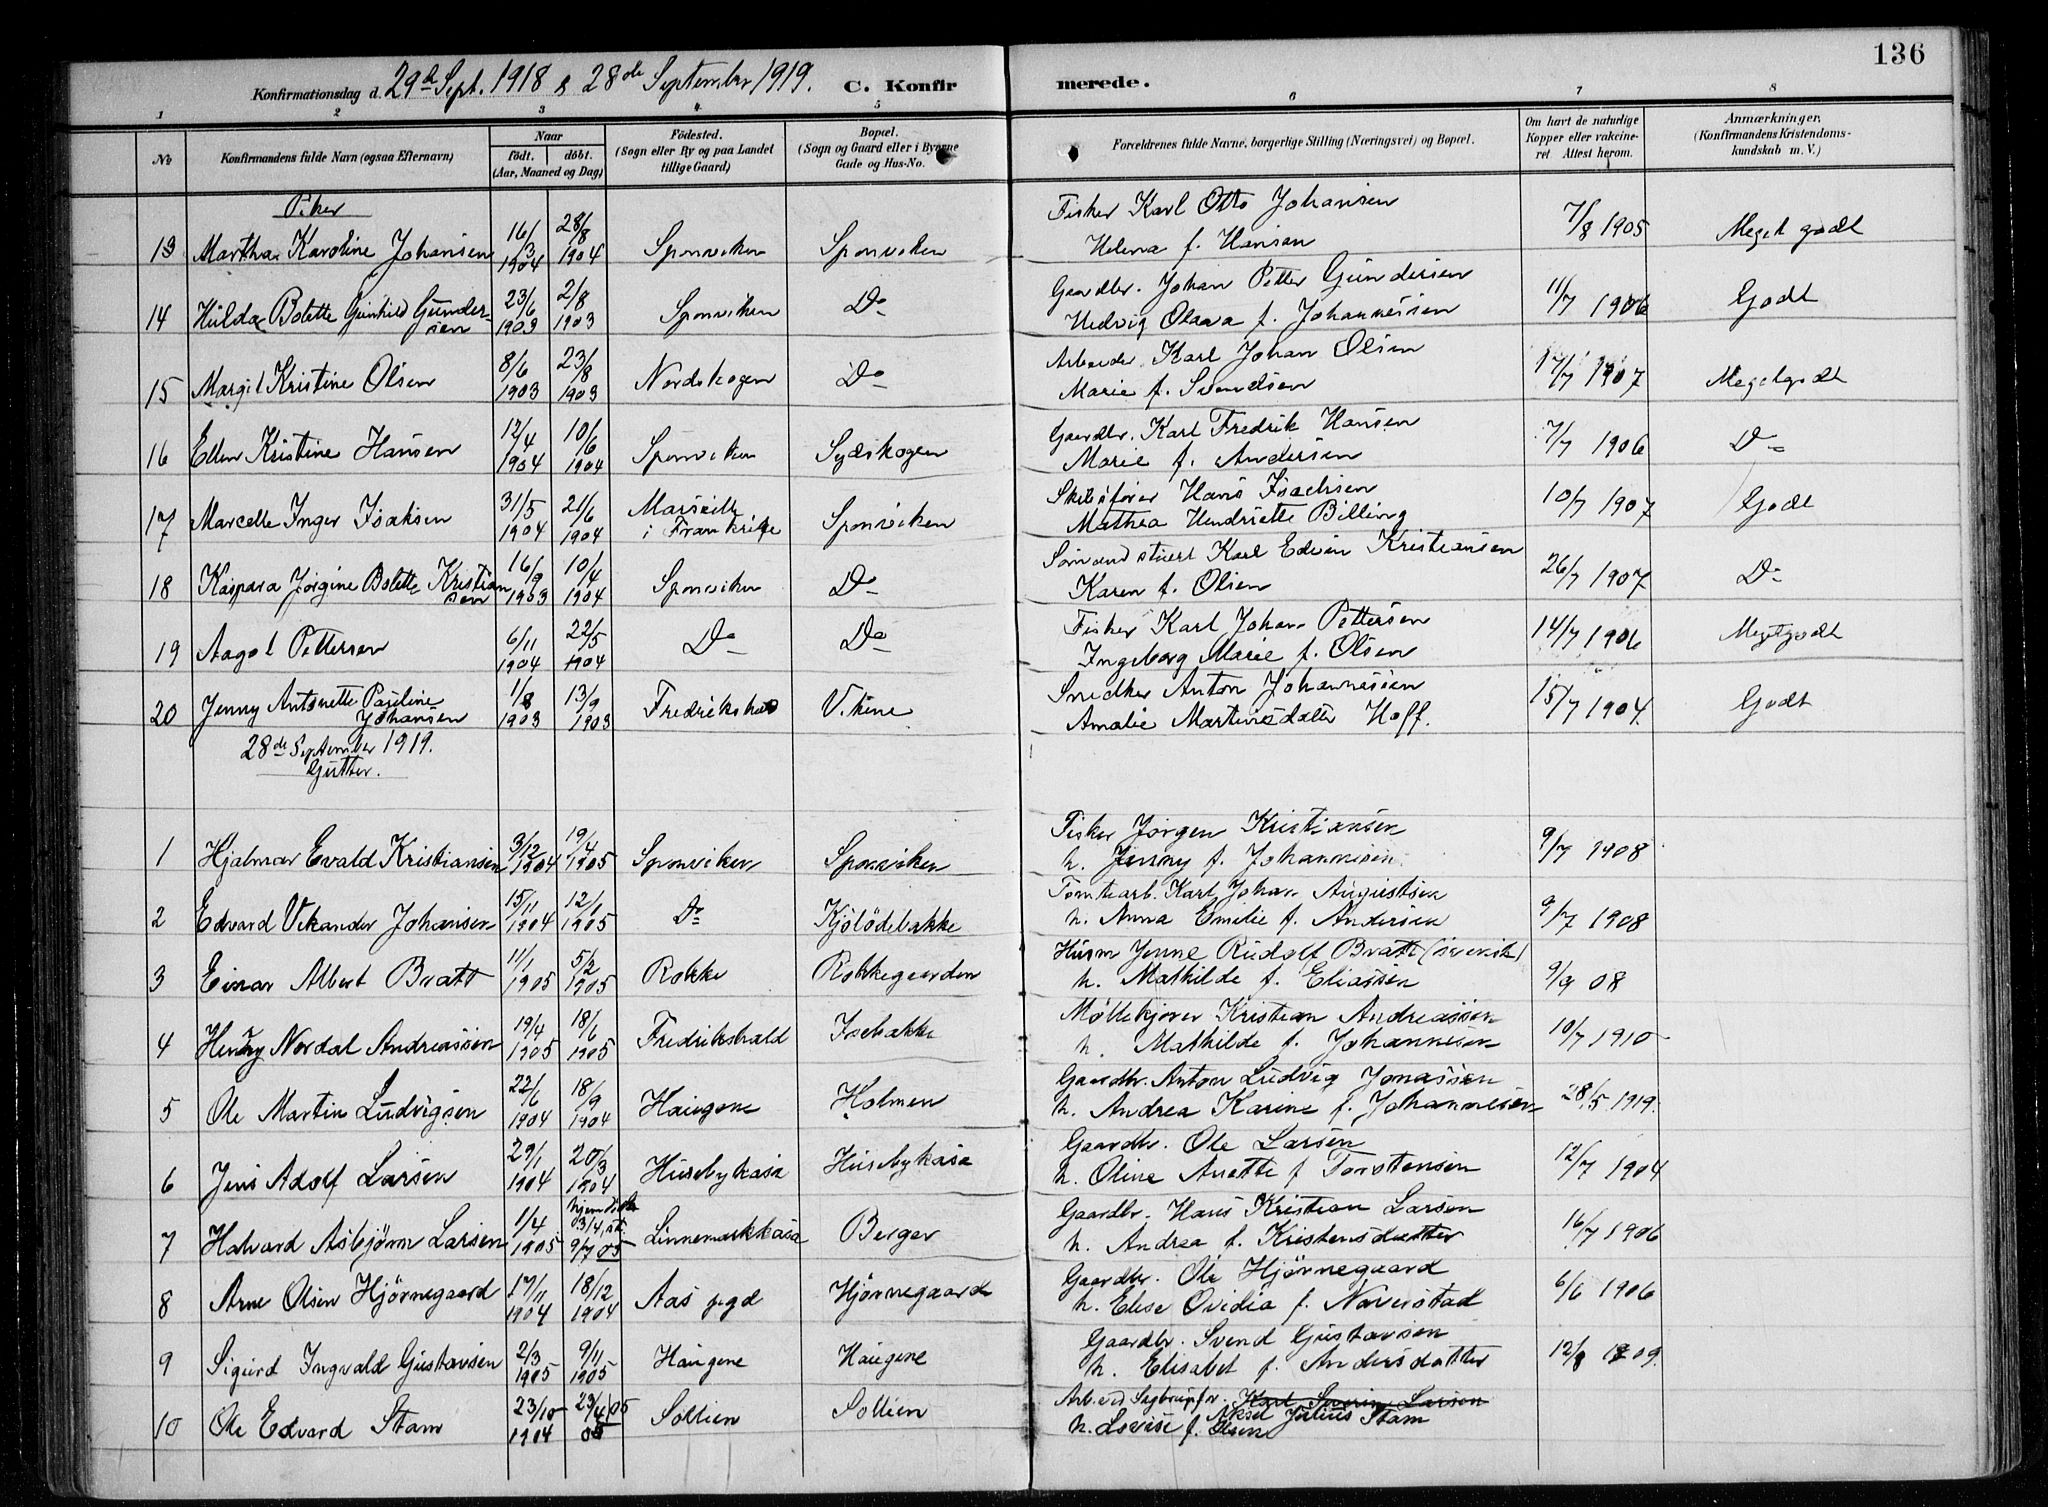 136
Konfirmationsdag d. 29de Sept. 1918 & 28de September 1919. C. Konfirmerede.
1 2 3 4 5 6 7 8
No
Konfirmandens fulde Navn (ogsaa Efternavn)
Naar
født. døbt.
(Aar, Maaned og Dag)
Fødested.
(Sogn eller By og paa Landet
tillige Gaard)
Bopæl.
(Sogn og Gaard eller i Byerne
Gade og Hus-No.
Forældrenes fulde Navne, borgerlige Stilling (Næringsvei) og Bopæl.
Om havt de naturlige
Kopper eller vakcine-
ret. Attest herom.
Anmærkninger.
(Konfirmandens Kristendoms-
kundskab m. V.)
Piker
13 Martha Karoline Johansen 16/3 1904 28/8 1904 Sponviken Sponviken Fisker Karl Otto Johansen
Helena f. Hansen 7/8 1905 Meget godt
14 Hulda Bolette Gunhild Gundersen 23/6 1903 2/8 1903 Sponviken Do Gaardbr. Johan Petter Gundersen
Hedvig Olava f. Johannessen 11/7 1906 Godt
15 Margit Kristine Olsen 8/6 1903 23/8 1903 Nordskogen Do Arbeider Karl Johan Olsen
Marie f. Svendsen 17/7 1907 Megetgodt
16 Ellen Kristine Hansen 12/4 1904 10/6 1904 Sponviken Sydskogen Gaardbr. Karl Fredrik Hansen
Marie f. Andersen 7/7 1906 Do
17 Marcelle Inger Isaksen 31/5 1904 21/6 1904 Marseille
i Frankrike Sponviken Skibsfører Hans Isaksen
Mathea Hendriette Billing 10/7 1907 Godt
18 Kaspara Jørgine Bolette Kristiansen 16/9 1903 10/4 1904 Sponviken Do Sømand stuert Karl Edvin Kristiansen
Karen f. Olsen 26/7 1907 Do
19 Aagot Pettersen 6/11 1904 22/5 1904 Do Do Fisker Karl Johan Pettersen
Ingeborg Marie f. Olsen 14/7 1906 Megetgodt
20 Jenny Antonette Pauline
Johansen 1/8 1903 13/9 1903 Fredrikshald Vikene Snedker Anton Johannessen
Amalie Martinesdatter Hoff. 15/7 1904. Godt
28de September 1919.
Gutter.
1 Hjalmar Evald Kristiansen 3/12 1904 19/4 1905 Sponviken Sponviken Fisker Jørgen Kristiansen
h. Jenny f. Johannesen 9/7 1908
2 Edvard Vikander Johansen 15/11 1904 12/1 1905 Do Kjølødebakke Tomtearb. Karl Johan Augustsen
h. Anna Emilie f. Andersen 9/7 1908
3 Einar Albert Bratt 11/1 1905 5/2 1905 Rokke Rokkegaarden Husm Jonne Rudolf Bratt (svensk)
h. Mathilde f. Eliassen 9/9 08
4 Henry Nordal Andreassen 19/4 1905 18/6 1905 Fredrikshald Isebakke Møllekjører Kristian Andreassen
h. Mathilde f. Johannesen 10/7 1910
5 Ole Martin Ludvigsen 22/6 1904 18/9 1904 Haugene Holmen Gaardbr. Anton Ludvig Jonassen
h. Andrea Karine f. Johannesen 28/5 1919.
6 Jens Adolf Larsen 29/1 1904 20/3 1904 Husebykasa Husebykasa Gaardbr. Ole Larsen
h. Oline Anette f Torstensen 12/7 1904
7 Halvard Asbjørn Larsen 1/4 1905 hjemdøbt 3/4, st. 9/7 05 Linnemarkkasa Berger Gaardbr. Hans Kristian Larsen
h. Andrea f. Kristensdatter 16/7 1906
8 Arne Olsen Hjørnegaard 17/11 1904 18/12 1904 Aas pgd Hjørnegaard Gaardbr. Ole Hjørnegaard
h. Elise Ovidia f. Naverstad 6/6 1906
9 Sigurd Ingvald Gustavsen 2/3 1905 9/11 1905 Haugene Haugene Gaardbr. Svend Gustavsen
h. Elisabet f. Andersdatter 12/8 1909.
10 Ole Edvard Stam 23/10 1904 23/4 05 Sollien Sollien Arb. Karl Severin Larsen
Aksel Julius Stam
h. Lovise f. Olsen